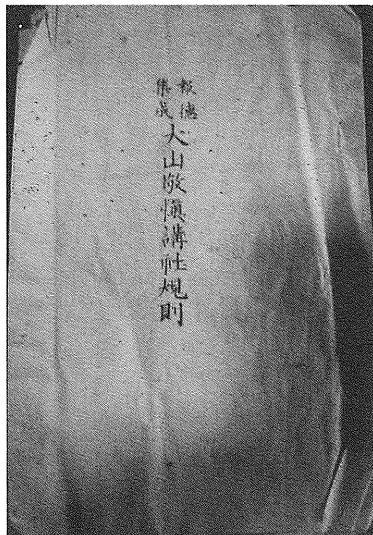 報徳
集成
大山敬愼講社規則